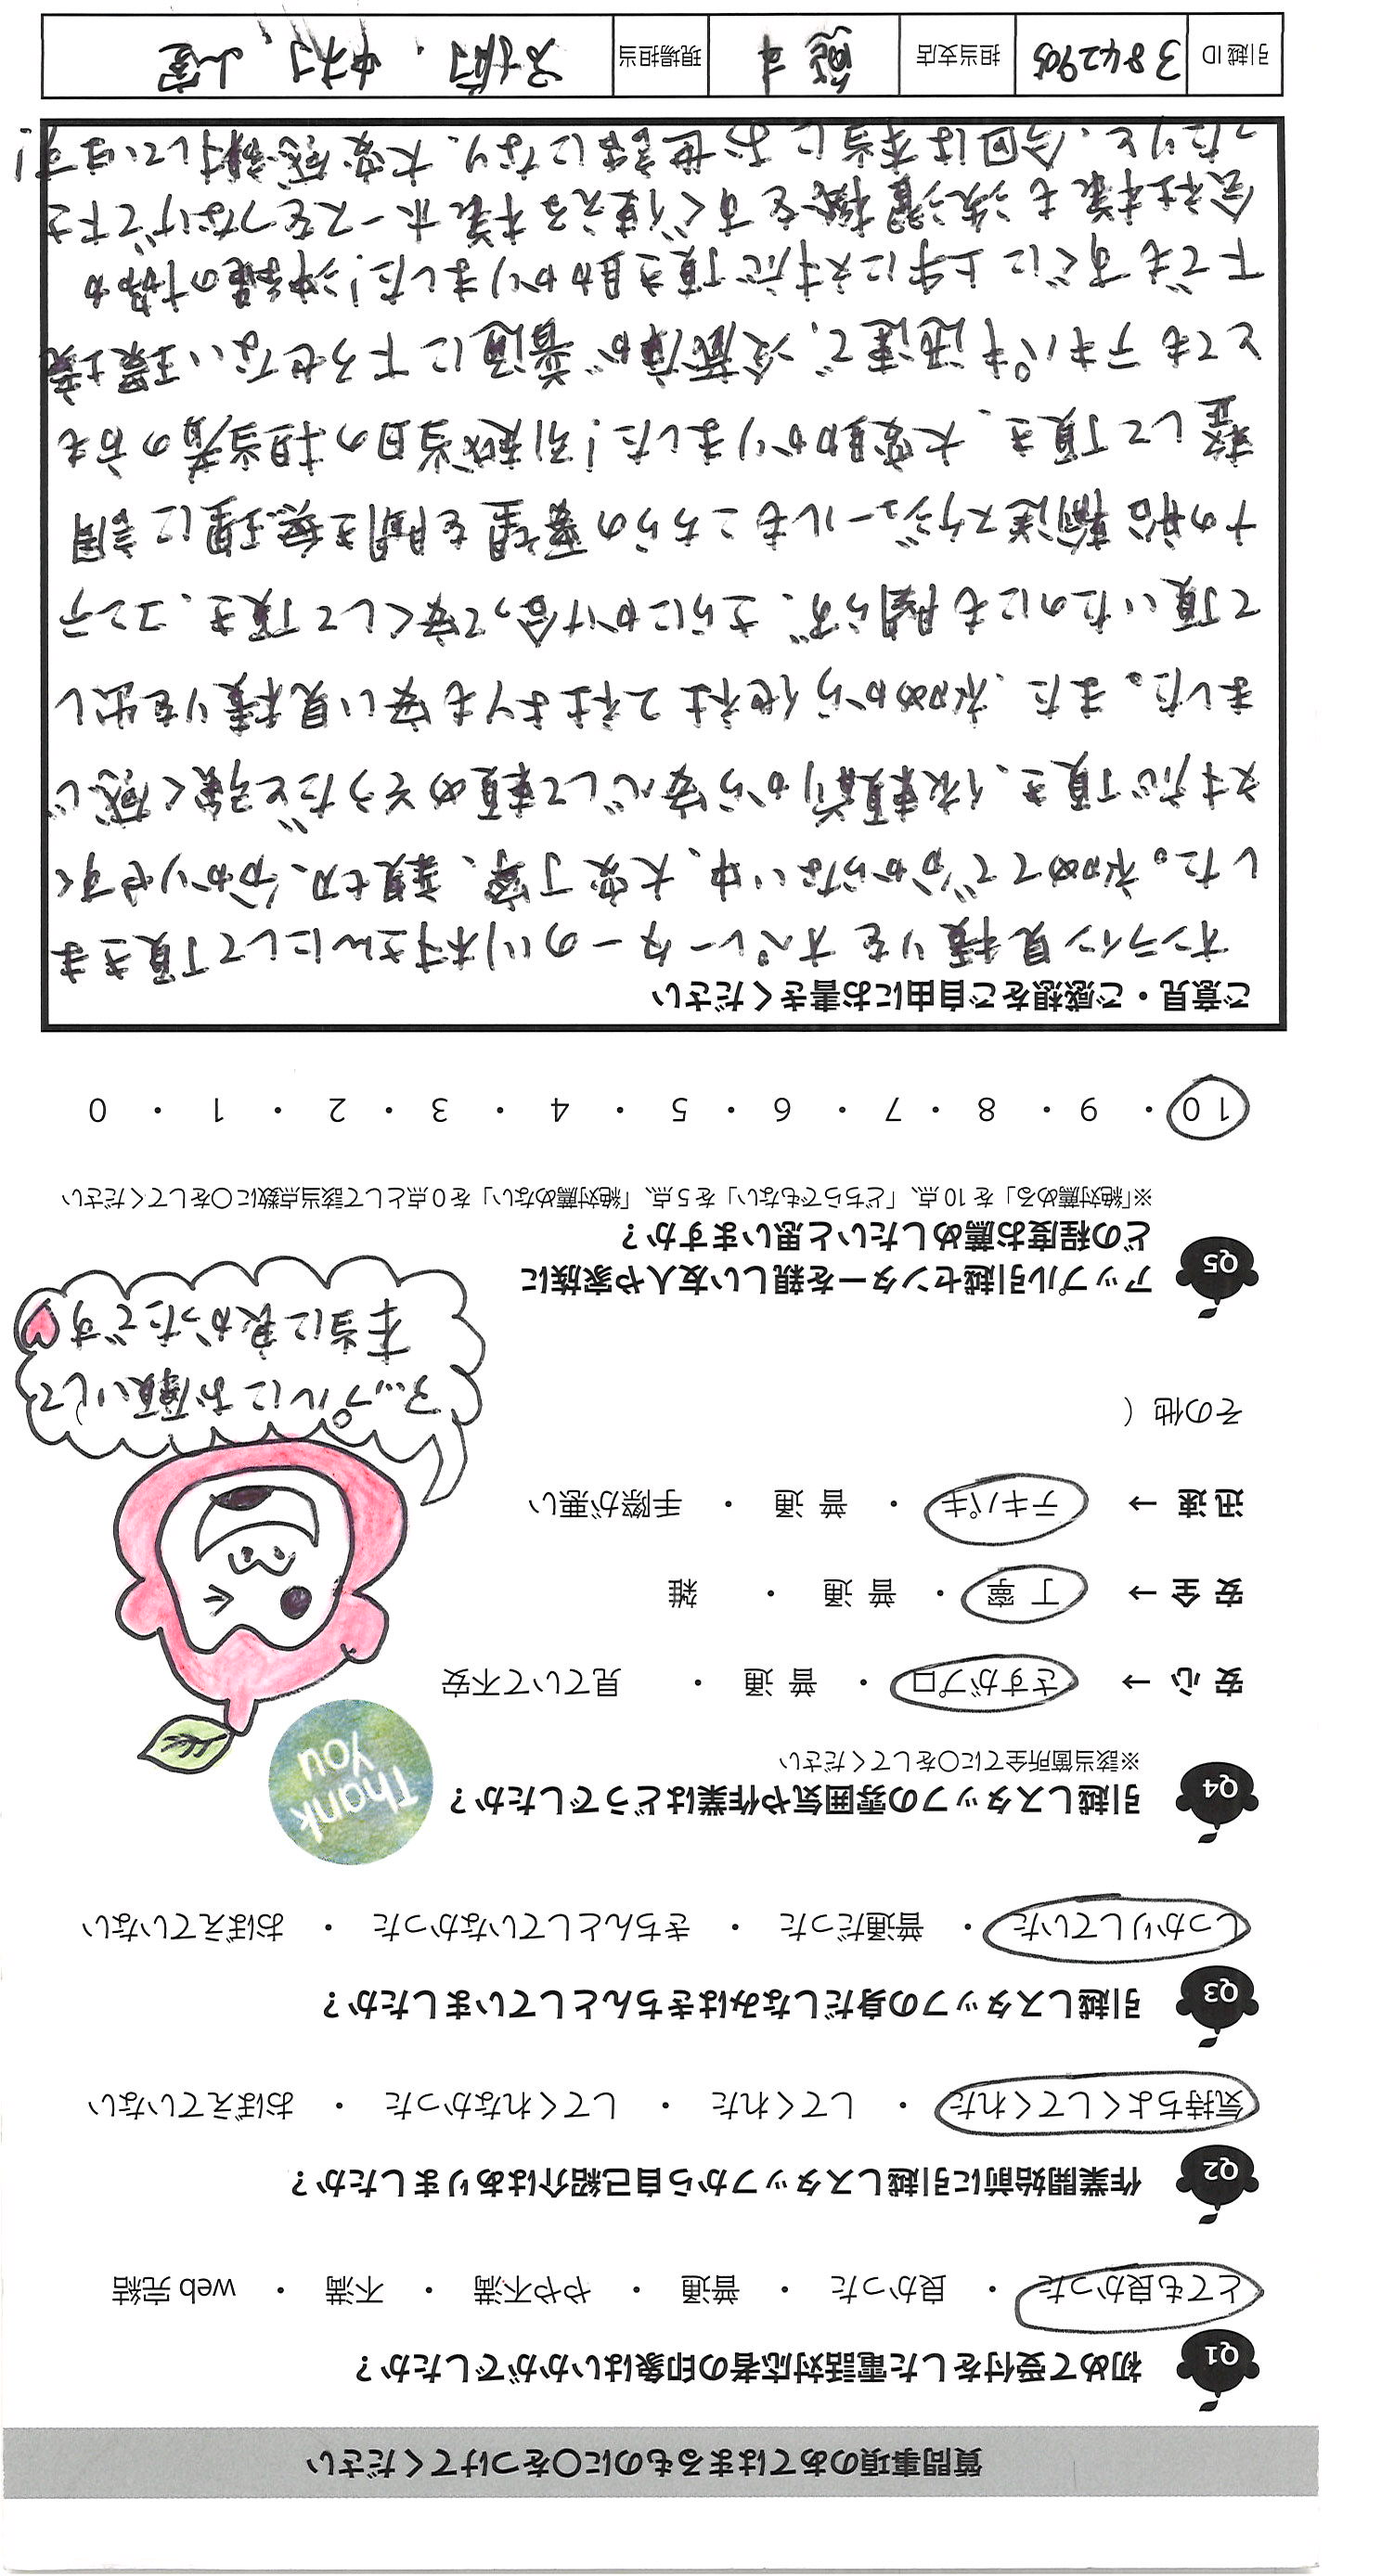 質問事項のあてはまるものに○をつけてください
Q1 初めて受付をした電話対応者の印象はいかがでしたか？
とても良かった ・ 良かった ・ 普通 ・ やや不満 ・ 不満 ・ web 完結
Q2 作業開始前に引越しスタッフから自己紹介はありましたか？
気持ちよくしてくれた ・ してくれた ・ してくれなかった ・ おぼえていない
Q3 引越しスタッフの身だしなみはきちんとしていましたか？
しっかりしていた ・ 普通だった ・ きちんとしていなかった ・ おぼえていない
Q4 引越しスタッフの雰囲気や作業はどうでしたか？
※該当箇所全てに○をしてください
Thank
you
安 心 → さすがプロ ・ 普 通 ・ 見ていて不安
安 全 → 丁 寧 ・ 普 通 ・ 雑
迅 速 → テキパキ ・ 普 通 ・ 手際が悪い
その他（
アップルにお願いして
本当に良かったです
Q5 アップル引越センターを親しい友人や家族に
どの程度お薦めしたいと思いますか？
※「絶対薦める」を 10 点、「どちらでもない」を 5 点、「絶対薦めない」を 0 点として該当点数に○をしてください
10 ・ 9 ・ 8 ・ 7 ・ 6 ・ 5 ・ 4 ・ 3 ・ 2 ・ 1 ・ 0
ご意見・ご感想をご自由にお書きください
オンライン見積りをオペレーターの川村さんにして頂きま
した。初めてで分からない中、大変丁寧、親切、分かりやすく
対応頂き、依頼前から安心して頼めそうだと強く感じ
ました。また、初めから他社2社よりも安い見積りを出し
て頂いたのにも関らず、さらにかけ合って安くして頂き、コンテ
ナの船輸送スケジュールもこちらの要望を聞き無理に調
整して頂き、大変助かりました！引越当日の担当者の方も
とてもテキパキ迅速で、冷蔵庫が普通に下ろせない環境
下でもすぐに上手に対応頂き助かりました！沖縄の協力
会社様も洗濯機をすぐ使える様ホースをつなげて下さ
ったりと、今回は本当にお世話になり、大変感謝しています！
引越 ID 3842905 担当支店 熊本 現場担当 中村、山室